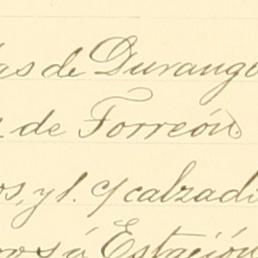 as de Durango
de Torreón
os, y l. c/ calzad
ros á Estación